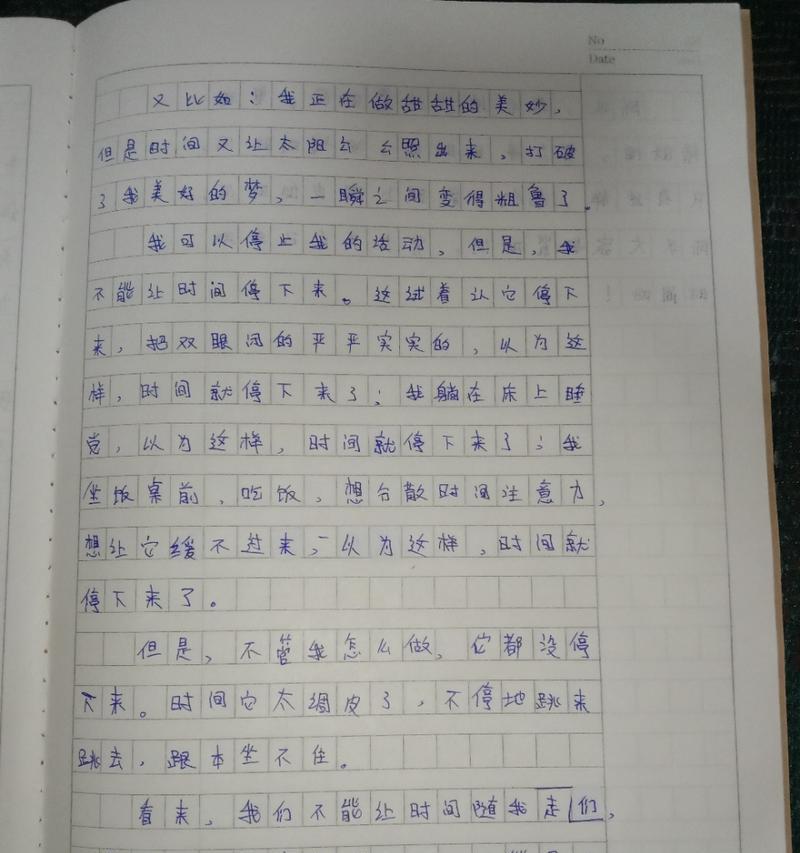 No
Date
又比如：我正在做甜甜的美妙，
但是时间又让太阳公公照出来，打破
了我美好的梦，一瞬之间变得粗鲁了。
我可以停止我的活动，但是，我
不能让时间停下来。这试着让它停下
来，把双眼闭的平平实实的，以为这
样，时间就停下来了；我躺在床上睡
觉，以为这样，时间就停下来了；我
坐饭桌前，吃饭，想分散时间注意力，
想让它缓不过来，以为这样，时间就
停下来了。
但是，不管我怎么做，它都没停
下来。时间它太调皮了，不停地跳来
跳去，跟本坐不住。
看来，我们不能让时间随我走们，